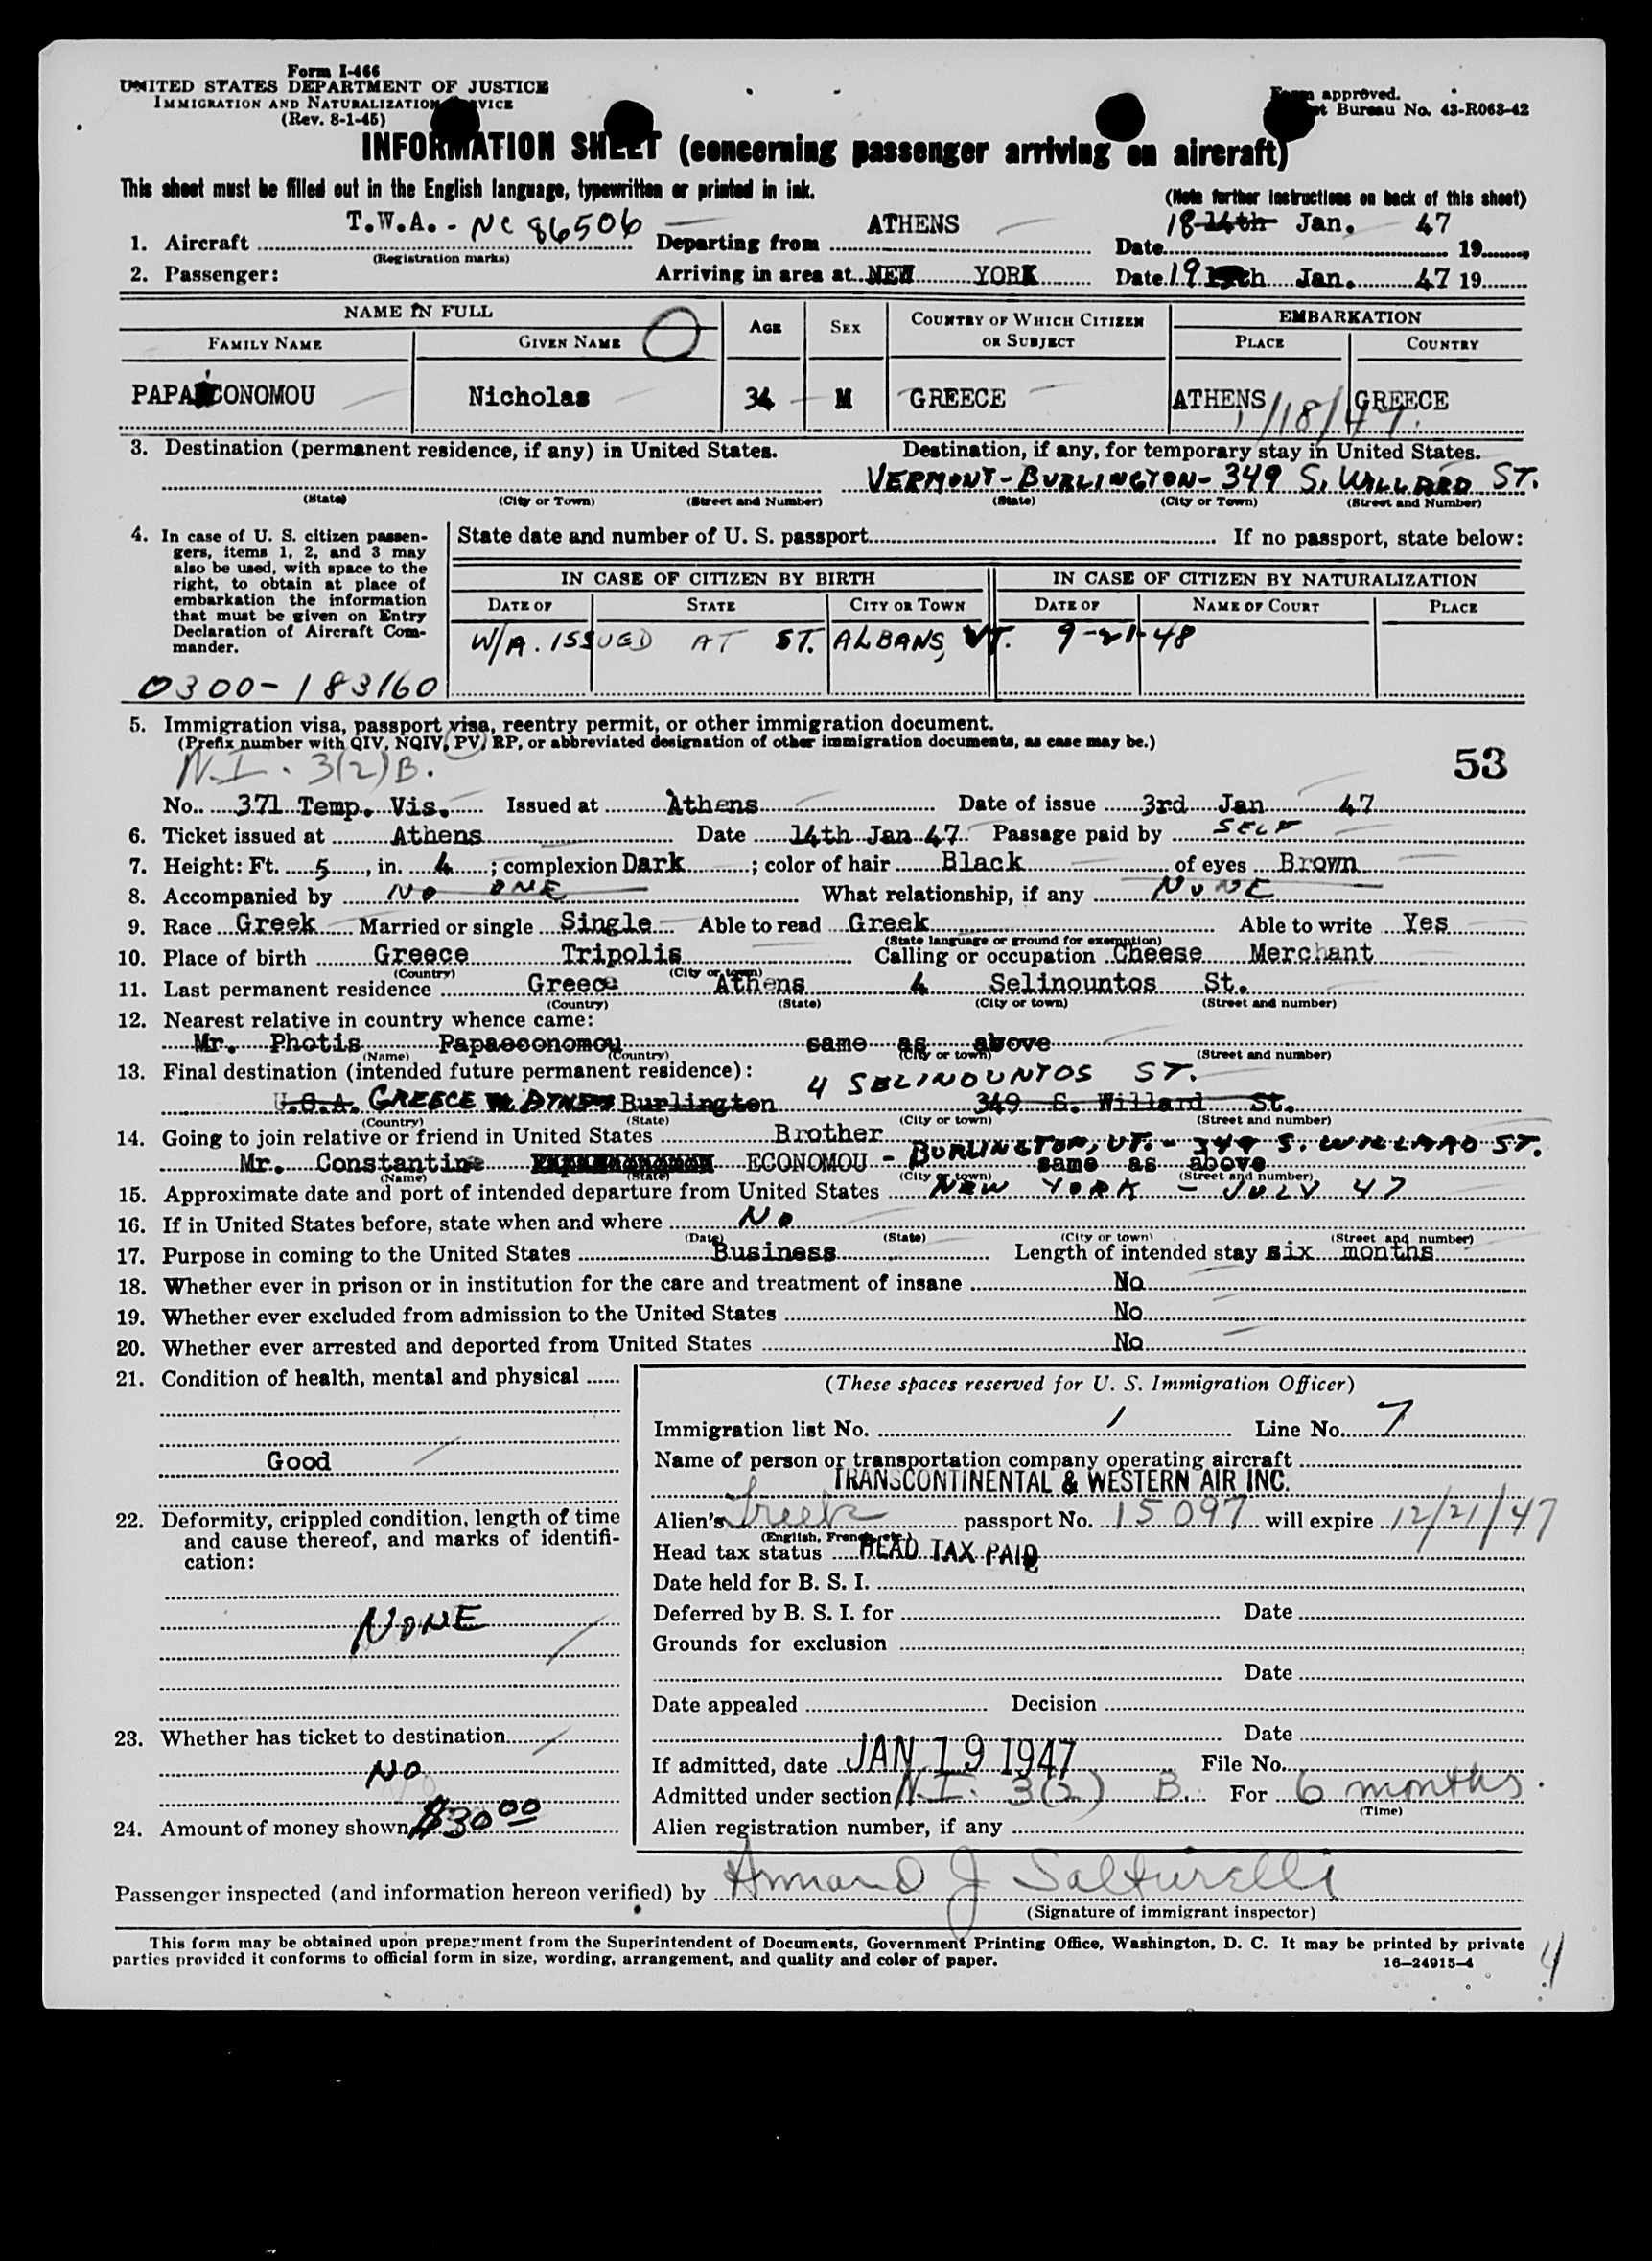 Form I-466
UNITED STATES DEPARTMENT OF JUSTICE
IMMIGRATION AND NATURALIZATION SERVICE
(Rev. 8-1-45)
Form approved.
Bureau No. 43-R063-42
INFORMATION SHEET (concerning passenger arriving on aircraft)
This sheet must be filled out in the English language, typewritten or printed in ink.
(Note further instructions on back of this sheet)
1. Aircraft T.W.A. - NC 86506 Departing from ATHENS Date 18 14th Jan. 47 19
(Registration marks)
2. Passenger: Arriving in area at NEW YORK Date 19 Jan. 47 19
NAME IN FULL AGE SEX COUNTRY OF WHICH CITIZEN OR SUBJECT EMBARKATION
FAMILY NAME GIVEN NAME PLACE COUNTRY
PAPAECONOMOU Nicholas 34 M GREECE ATHENS GREECE
1/18/47.
3. Destination (permanent residence, if any) in United States. Destination, if any, for temporary stay in United States.
VERMONT - BURLINGTON - 349 S. WILLARD ST.
(State) (City or Town) (Street and Number) (State) (City or Town) (Street and Number)
4. In case of U. S. citizen passengers, items 1, 2, and 3 may also be used, with space to the right, to obtain at place of embarkation the information that must be given on Entry Declaration of Aircraft Commander.
State date and number of U. S. passport If no passport, state below:
IN CASE OF CITIZEN BY BIRTH IN CASE OF CITIZEN BY NATURALIZATION
DATE OF STATE CITY OR TOWN DATE OF NAME OF COURT PLACE
W/A. ISSUED AT ST. ALBANS, VT. 9-21-48
0300-183160
5. Immigration visa, passport visa, reentry permit, or other immigration document.
(Prefix number with QIV, NQIV, PV, RP, or abbreviated designation of other immigration documents, as case may be.)
N.I. 3(2)B.
53
No. 371 Temp. Vis. Issued at Athens Date of issue 3rd Jan 47
6. Ticket issued at Athens Date 14th Jan 47. Passage paid by SELF
7. Height: Ft. 5, in. 4; complexion Dark; color of hair Black of eyes Brown
8. Accompanied by NO ONE What relationship, if any NONE
9. Race Greek Married or single Single Able to read Greek Able to write Yes
(State language or ground for exemption)
10. Place of birth Greece Tripolis Calling or occupation Cheese Merchant
(Country) (City or town)
11. Last permanent residence Greece Athens 4 Selinountos St.
(Country) (State) (City or town) (Street and number)
12. Nearest relative in country whence came:
Mr. Photis Papaeconomou same as above
(Name) (Country) (City or town) (Street and number)
13. Final destination (intended future permanent residence): 4 SELINOUNTOS ST.
U.S.A. GREECE Burlington 349 S. Willard St.
(Country) (State) (City or town) (Street and number)
14. Going to join relative or friend in United States Brother
BURLINGTON, VT. - 349 S. WILLARD ST.
Mr. Constantine ECONOMOU - same as above
(Name) (State) (City or town) (Street and number)
15. Approximate date and port of intended departure from United States NEW YORK - JULY 47
16. If in United States before, state when and where NO
(Date) (State) (City or town) (Street and number)
17. Purpose in coming to the United States Business Length of intended stay six months
18. Whether ever in prison or in institution for the care and treatment of insane No
19. Whether ever excluded from admission to the United States No
20. Whether ever arrested and deported from United States No
21. Condition of health, mental and physical
Good
22. Deformity, crippled condition, length of time and cause thereof, and marks of identification:
NONE
23. Whether has ticket to destination
NO
24. Amount of money shown $30 00
(These spaces reserved for U. S. Immigration Officer)
Immigration list No. 1 Line No. 7
Name of person or transportation company operating aircraft
TRANSCONTINENTAL & WESTERN AIR INC.
Alien's Greek passport No. 15097 will expire 12/21/47
(English, French, etc.)
Head tax status HEAD TAX PAID
Date held for B. S. I.
Deferred by B. S. I. for Date
Grounds for exclusion
Date
Date appealed Decision
Date
If admitted, date JAN 19 1947 File No.
Admitted under section N.I. 3(2) B. For 6 months.
(Time)
Alien registration number, if any
Passenger inspected (and information hereon verified) by Armand J Salturelli
(Signature of immigrant inspector)
This form may be obtained upon prepayment from the Superintendent of Documents, Government Printing Office, Washington, D. C. It may be printed by private
parties provided it conforms to official form in size, wording, arrangement, and quality and color of paper. 16—24915-4
4